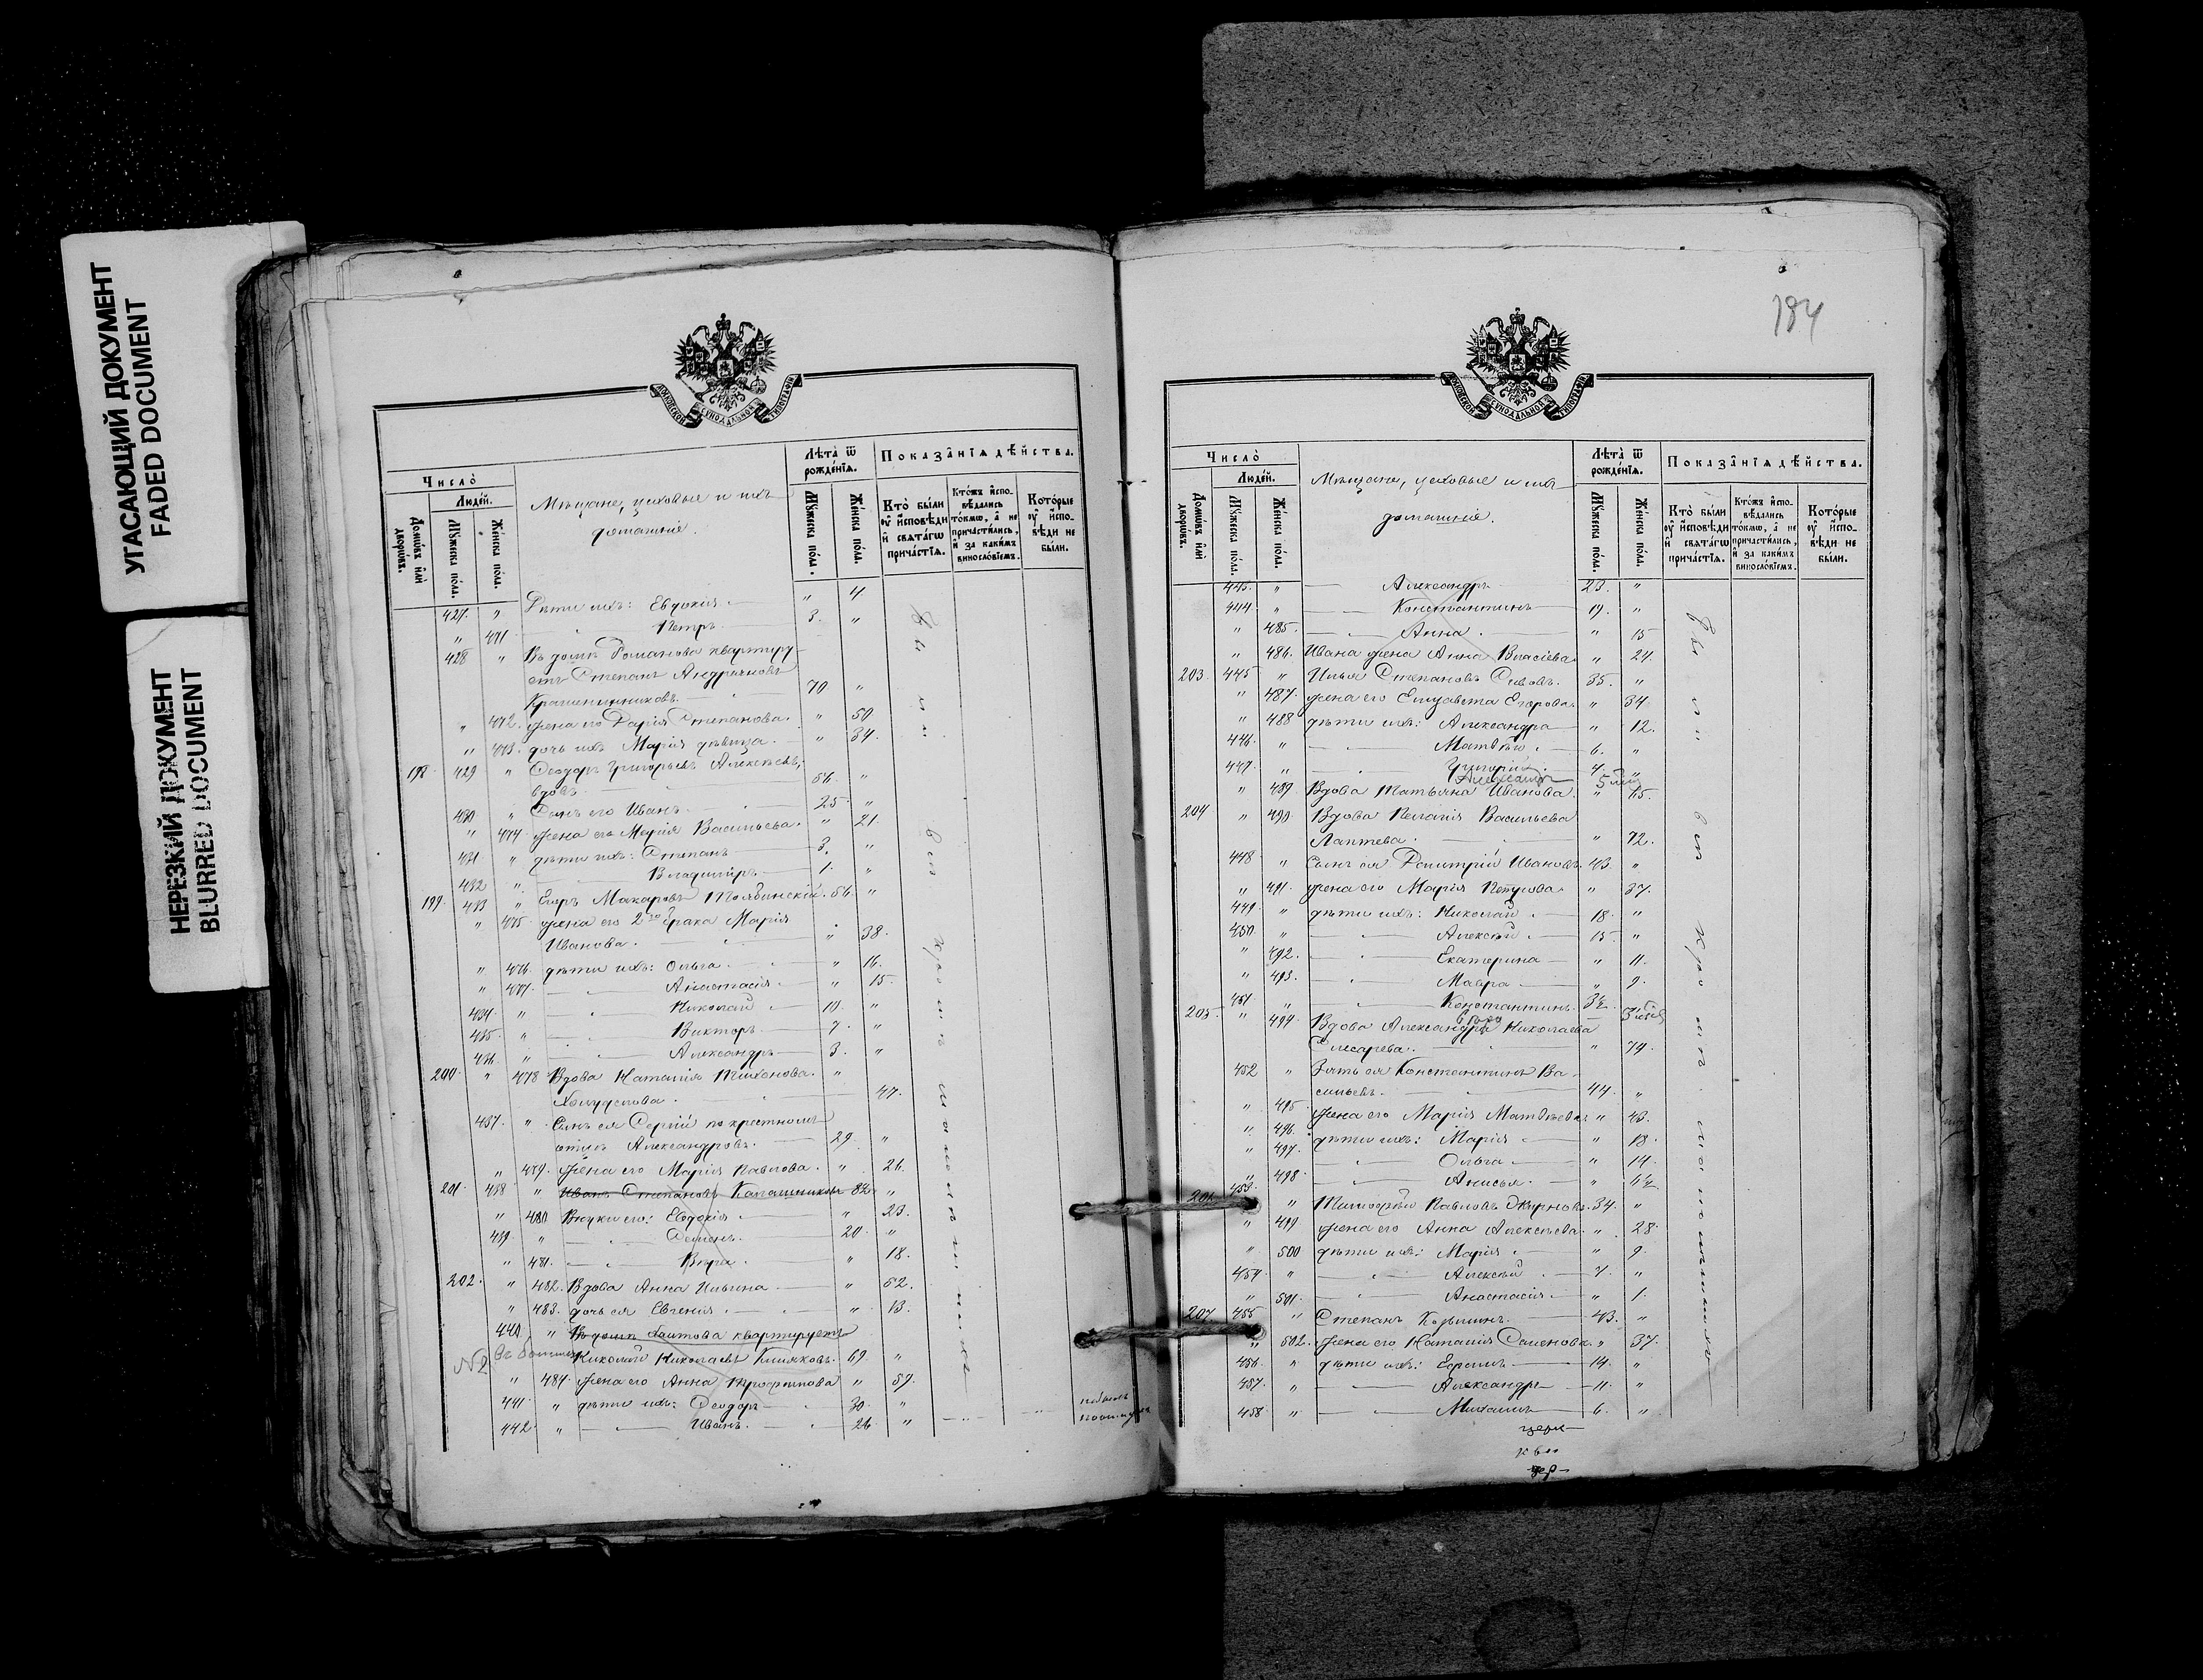 УГАСАЮЩИЙ ДОКУМЕНТ
FADED DOCUMENT
НЕРЕЗКИЙ ДОКУМЕНТ
BLURRED DOCUMENT
МОСКОВСКОЙ СѴНОДАЛЬНОЙ ТИПОГРАФІИ
Число̀
Людей.
Домѡвъ или дворѡвъ.
Мꙋжеска пола.
Женска пола.
Мѣщане, цеховые и ихъ
домашніе.
Лѣта ѿ рожденїѧ.
Мꙋжеска пола.
Женска пола.
Показанїѧ дѣйства.
Кто были оу исповѣди и свѧтагѡ причастїѧ.
Ктожъ исповѣдались токмѡ, а не причастились, и за какимъ винословїемъ.
Которые оу исповѣди не были.
Дѣти ихъ: Евдокія " 4
427. " Петръ 3. "
" 471
428 " Въ домѣ Романова квартиру-
етъ Степанъ Андреяновъ
Крашенинниковъ. 70. "
" 472. жена его Дарія Степанова. " 50
" 473. дочь ихъ Марія дѣвица. " 34.
198. 429 " Ѳеодоръ Григорьевъ Алексѣевъ,
вдовъ 56. "
430 " Сынъ его Иванъ 25 "
" 474 жена его Марія Васильева. " 21.
431 " дѣти ихъ: Степанъ 3. "
432 " Владиміръ 1. "
199. 433 " Егоръ Макаровъ 56. "
" 475 жена его 2го брака Марія
Иванова. " 38.
" 476 дѣти ихъ: Ольга. " 16.
" 477. Анастасія " 15.
434 " Николай 10. "
435 " Викторъ 7. "
436 " Александръ 3. "
200. " 478 Вдова Наталія Тихонова. "
47.
437. " Сынъ ея Сергій по крестному
отцу Александровъ. 29. "
" 479. жена его Марія Павлова. " 26.
201. 438 " Иванъ Степановъ Калашниковъ 82 "
" 480 Внуки его: Евдокія " 23.
439 " Семенъ. 20. "
" 481. Вѣра. " 18.
202. " 482. Вдова Анна Ильина " 52.
" 483. дочь ея Евгенія. " 13.
440 " Въ домѣ квартируетъ
№2 Николай Николаевъ 69. "
" 484. жена его Анна Трофимова " 59.
441 " дѣти ихъ: Ѳеодоръ 30. "
442 " Иванъ. 26 "
184
МОСКОВСКОЙ СѴНОДАЛЬНОЙ ТИПОГРАФІИ
Число̀
Людей.
Домѡвъ или дворѡвъ.
Мꙋжеска пола.
Женска пола.
Мѣщане, цеховые и ихъ
домашніе.
Лѣта ѿ рожденїѧ.
Мꙋжеска пола.
Женска пола.
Показанїѧ дѣйства.
Кто были оу исповѣди и свѧтагѡ причастїѧ.
Ктожъ исповѣдались токмѡ, а не причастились, и за какимъ винословїемъ.
Которые оу исповѣди не были.
443. " Александръ 23. "
444. " Константинъ 19. "
" 485. Анна " 15
" 486. Ивана жена Анна Власіева " 24.
203. 445 " Илья Степановъ Сивовъ. 35. "
" 487. жена его Елизавета Егорова " 34
" 488 дѣти ихъ: Александра " 12.
446. " Матвѣй 6. "
447. " Григорій 4. "
" 489 Вдова Татьяна Иванова. " 65.
204 " 490. Вдова Пелагія Васильева
Лаптева " 72.
448 " Сынъ ея Димитрій Ивановъ 43. "
" 491. жена его Марія Петрова " 37.
449. " дѣти ихъ: Николай 18. "
450. " Алексѣй 15. "
" 492. Екатерина " 11.
" 493. Мавра " 9.
451. " Константинъ 3½
205. " 494. Вдова Александра Николаева
Слесарева. " 79.
452 " Зять ея Константинъ Ва-
сильевъ 44. "
" 495 жена его Марія Матвѣева " 43.
" 496. дѣти ихъ: Марія " 18.
" 497. Ольга " 14.
" 498. Анисья " 6½
206. 453 " Тимофей Павловъ 34. "
" 499 жена его Анна Алексѣева " 28.
" 500 дѣти ихъ: Марія " 9.
454. " Алексѣй 7. "
" 501. Анастасія " 1.
207. 455 " Степанъ 43. "
" 502. жена его Наталія Семенова " 37.
456. " дѣти ихъ: Ефимъ 14. "
457. " Александръ 11. "
458. " Михаилъ 6. "